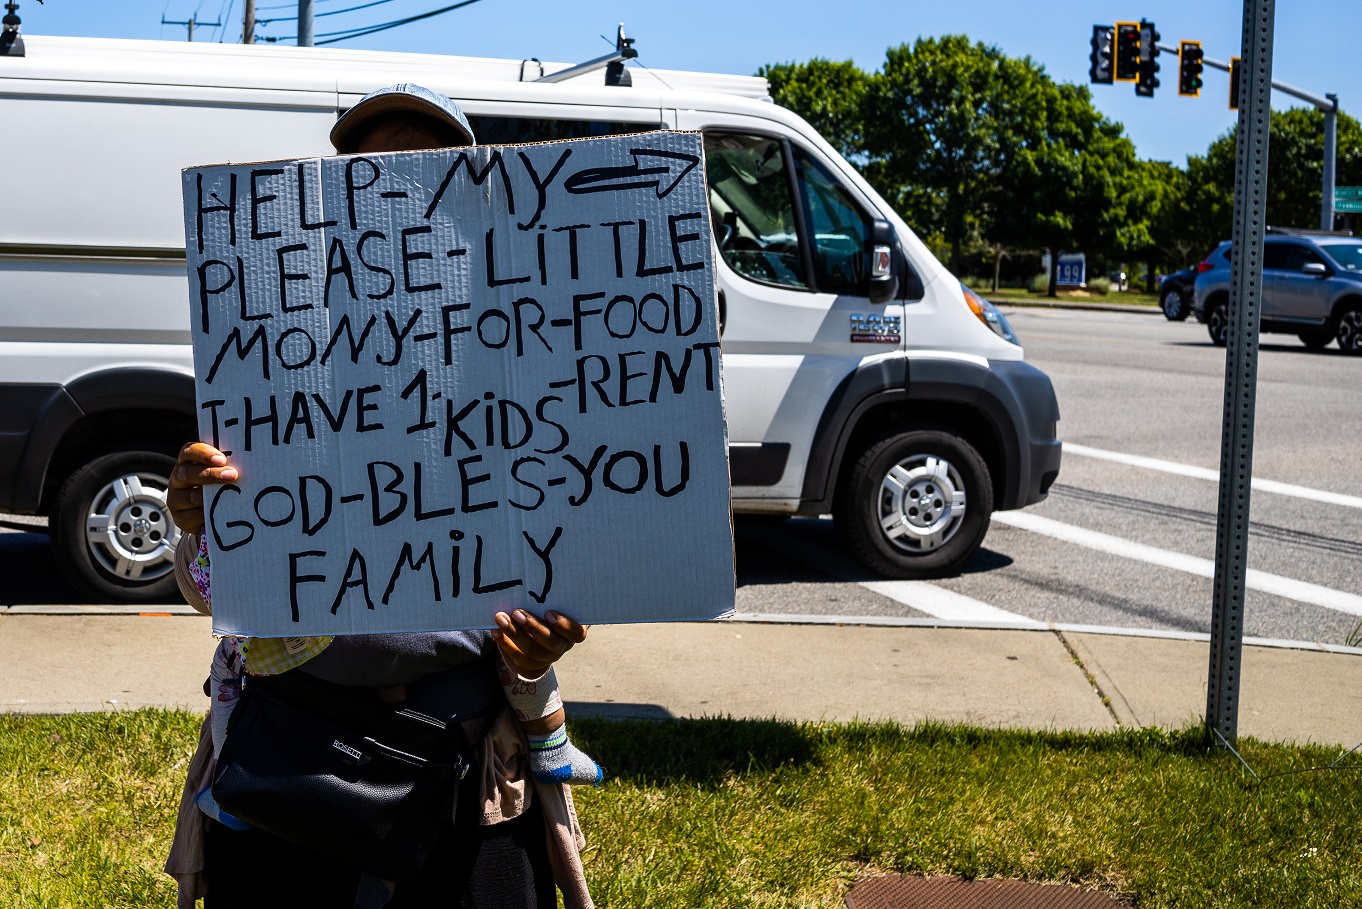 HELP-MY
PLEASE-LiTTLE
MONY-FOR-FOOD
I-HAVE 1-KiDS-RENT
GOD-BLES-YOU
FAMiLY
ROSETTI
RAM